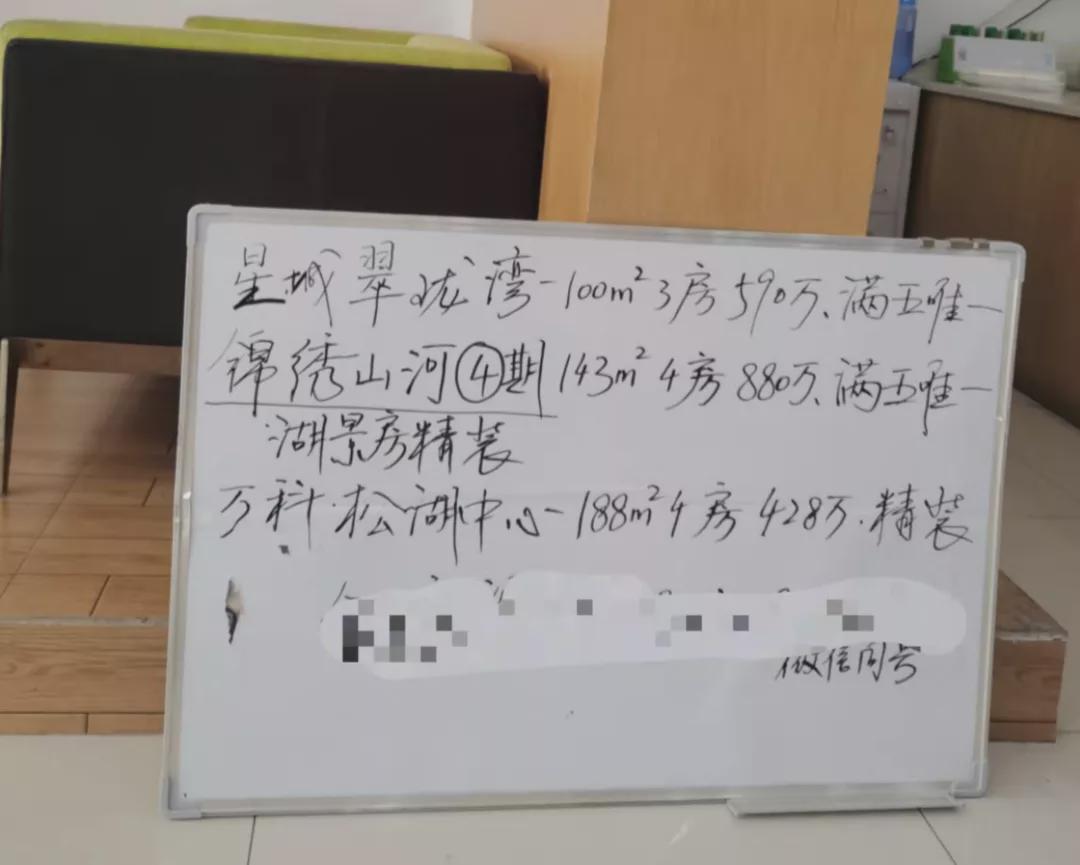 星城翠珑湾-100m²3房590万、满五唯一
锦绣山河④期143m²4房880万、满五唯一
湖景房精装
万科·松湖中心-188m²4房428万.精装
微信同号